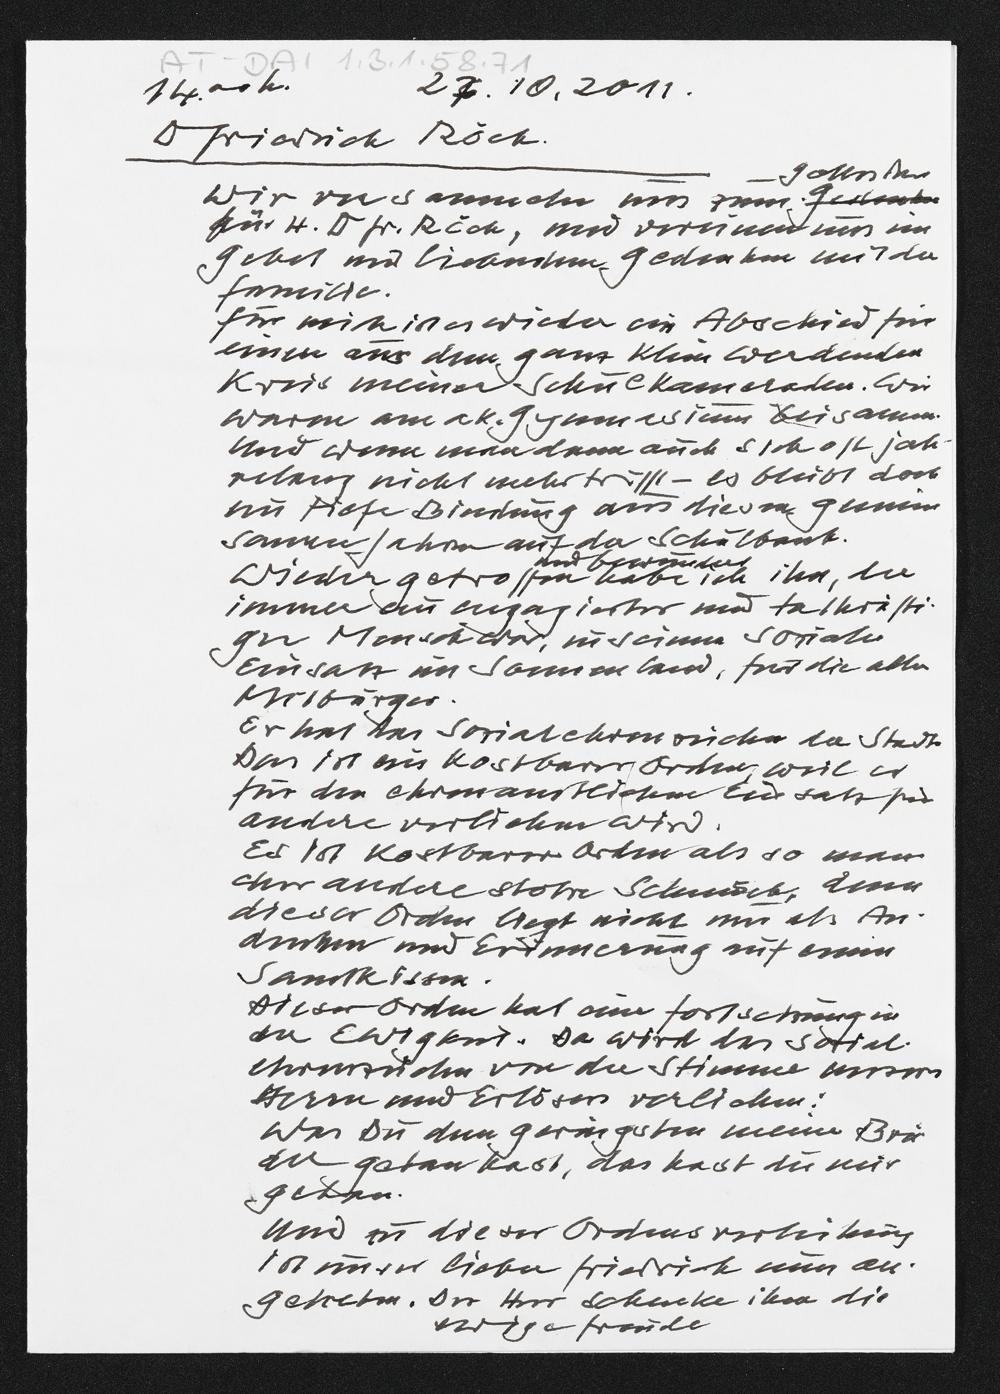 AT-DAI 1.3.1.58.71
27. 10. 2011.
D Friedrich Röck.
Wir versammeln uns zum Gottesdien
für H. D Fr. Röck, und vereinen uns im
Gebet und liebendem Gedenken mit der
Familie.
Für mich ist es wieder ein Abschied für
einen aus dem ganz klein werdenden
Kreis meiner Schulkameraden. Wir
waren am ak. Gymnasium beisamm.
Und wenn man dann auch sich oft jah-
relang nicht mehr trifft – es bleibt doch
eine tiefe Bindung aus diesen gemein
samen Jahren auf der Schulbank.
und bewundert
Wieder getroffen habe ich ihn, der
immer ein engagierter und tatkräfti-
ger Mensch war, in seinem Soziale
Einsatz im Sonnenland, für die alten
Mitbürger.
Er hat das Sozialehrenzeichen der Stadt.
Das ist ein kostbarer Orden, weil er
für den ehrenamtlichen Einsatz für
andere verliehen wird.
Es ist kostbarer Orden als so man
cher andere stolze Schmuck, denn
dieser Orden liegt nicht nur als An-
denken und Erinnerung auf einem
Samtkissen.
Dieser Orden hat eine Fortsetzung in
der Ewigkeit. Da wird das Sozial-
ehrenzeichen von der Stimme unseres
Herrn und Erlösers verliehen:
Was Du dem geringsten meiner Brü
der getan hast, das hast du mir
getan.
Und zu dieser Ordensverleihung
ist unser lieber Friedrich nun an-
getreten. Der Herr schenke ihm die
ewige Freude